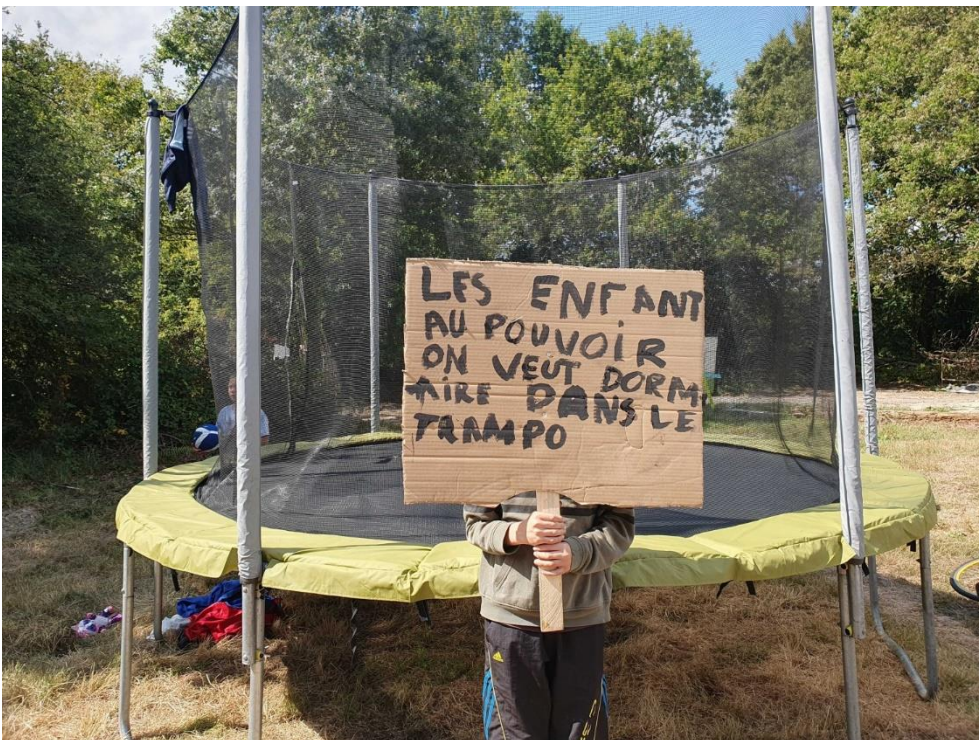 LES ENFANT
AU POUVOIR
ON VEUT DORM
AIRE DANS LE
TRAMPO